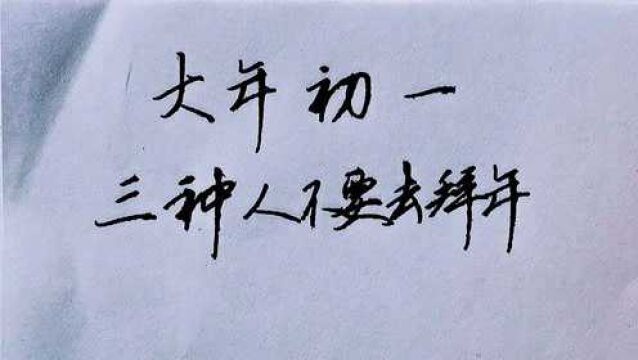 大年初一
三种人不要去拜年